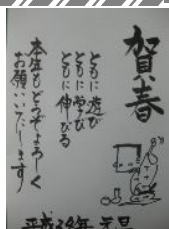 賀春
ともに遊び
ともに学び
ともに伸びる
本年もどうぞよろしく
お願いいたします
元旦